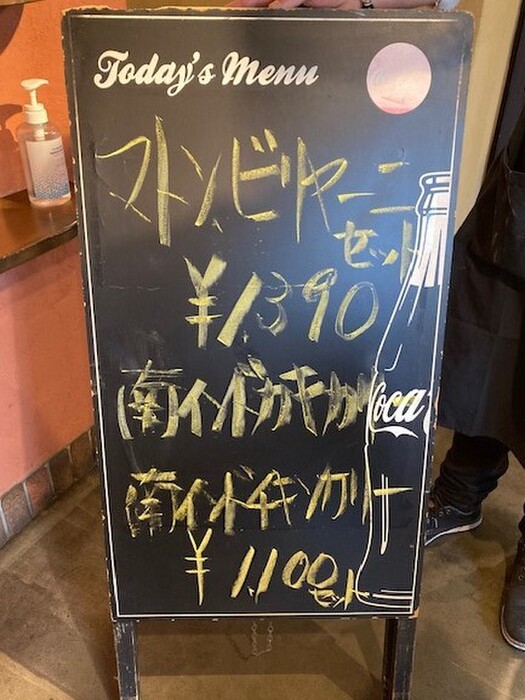 Today's Menu
マトンビリヤーニ
セット
¥1390
南インドカキカリ
南インドチキンカリー
¥1,100セット
Coca